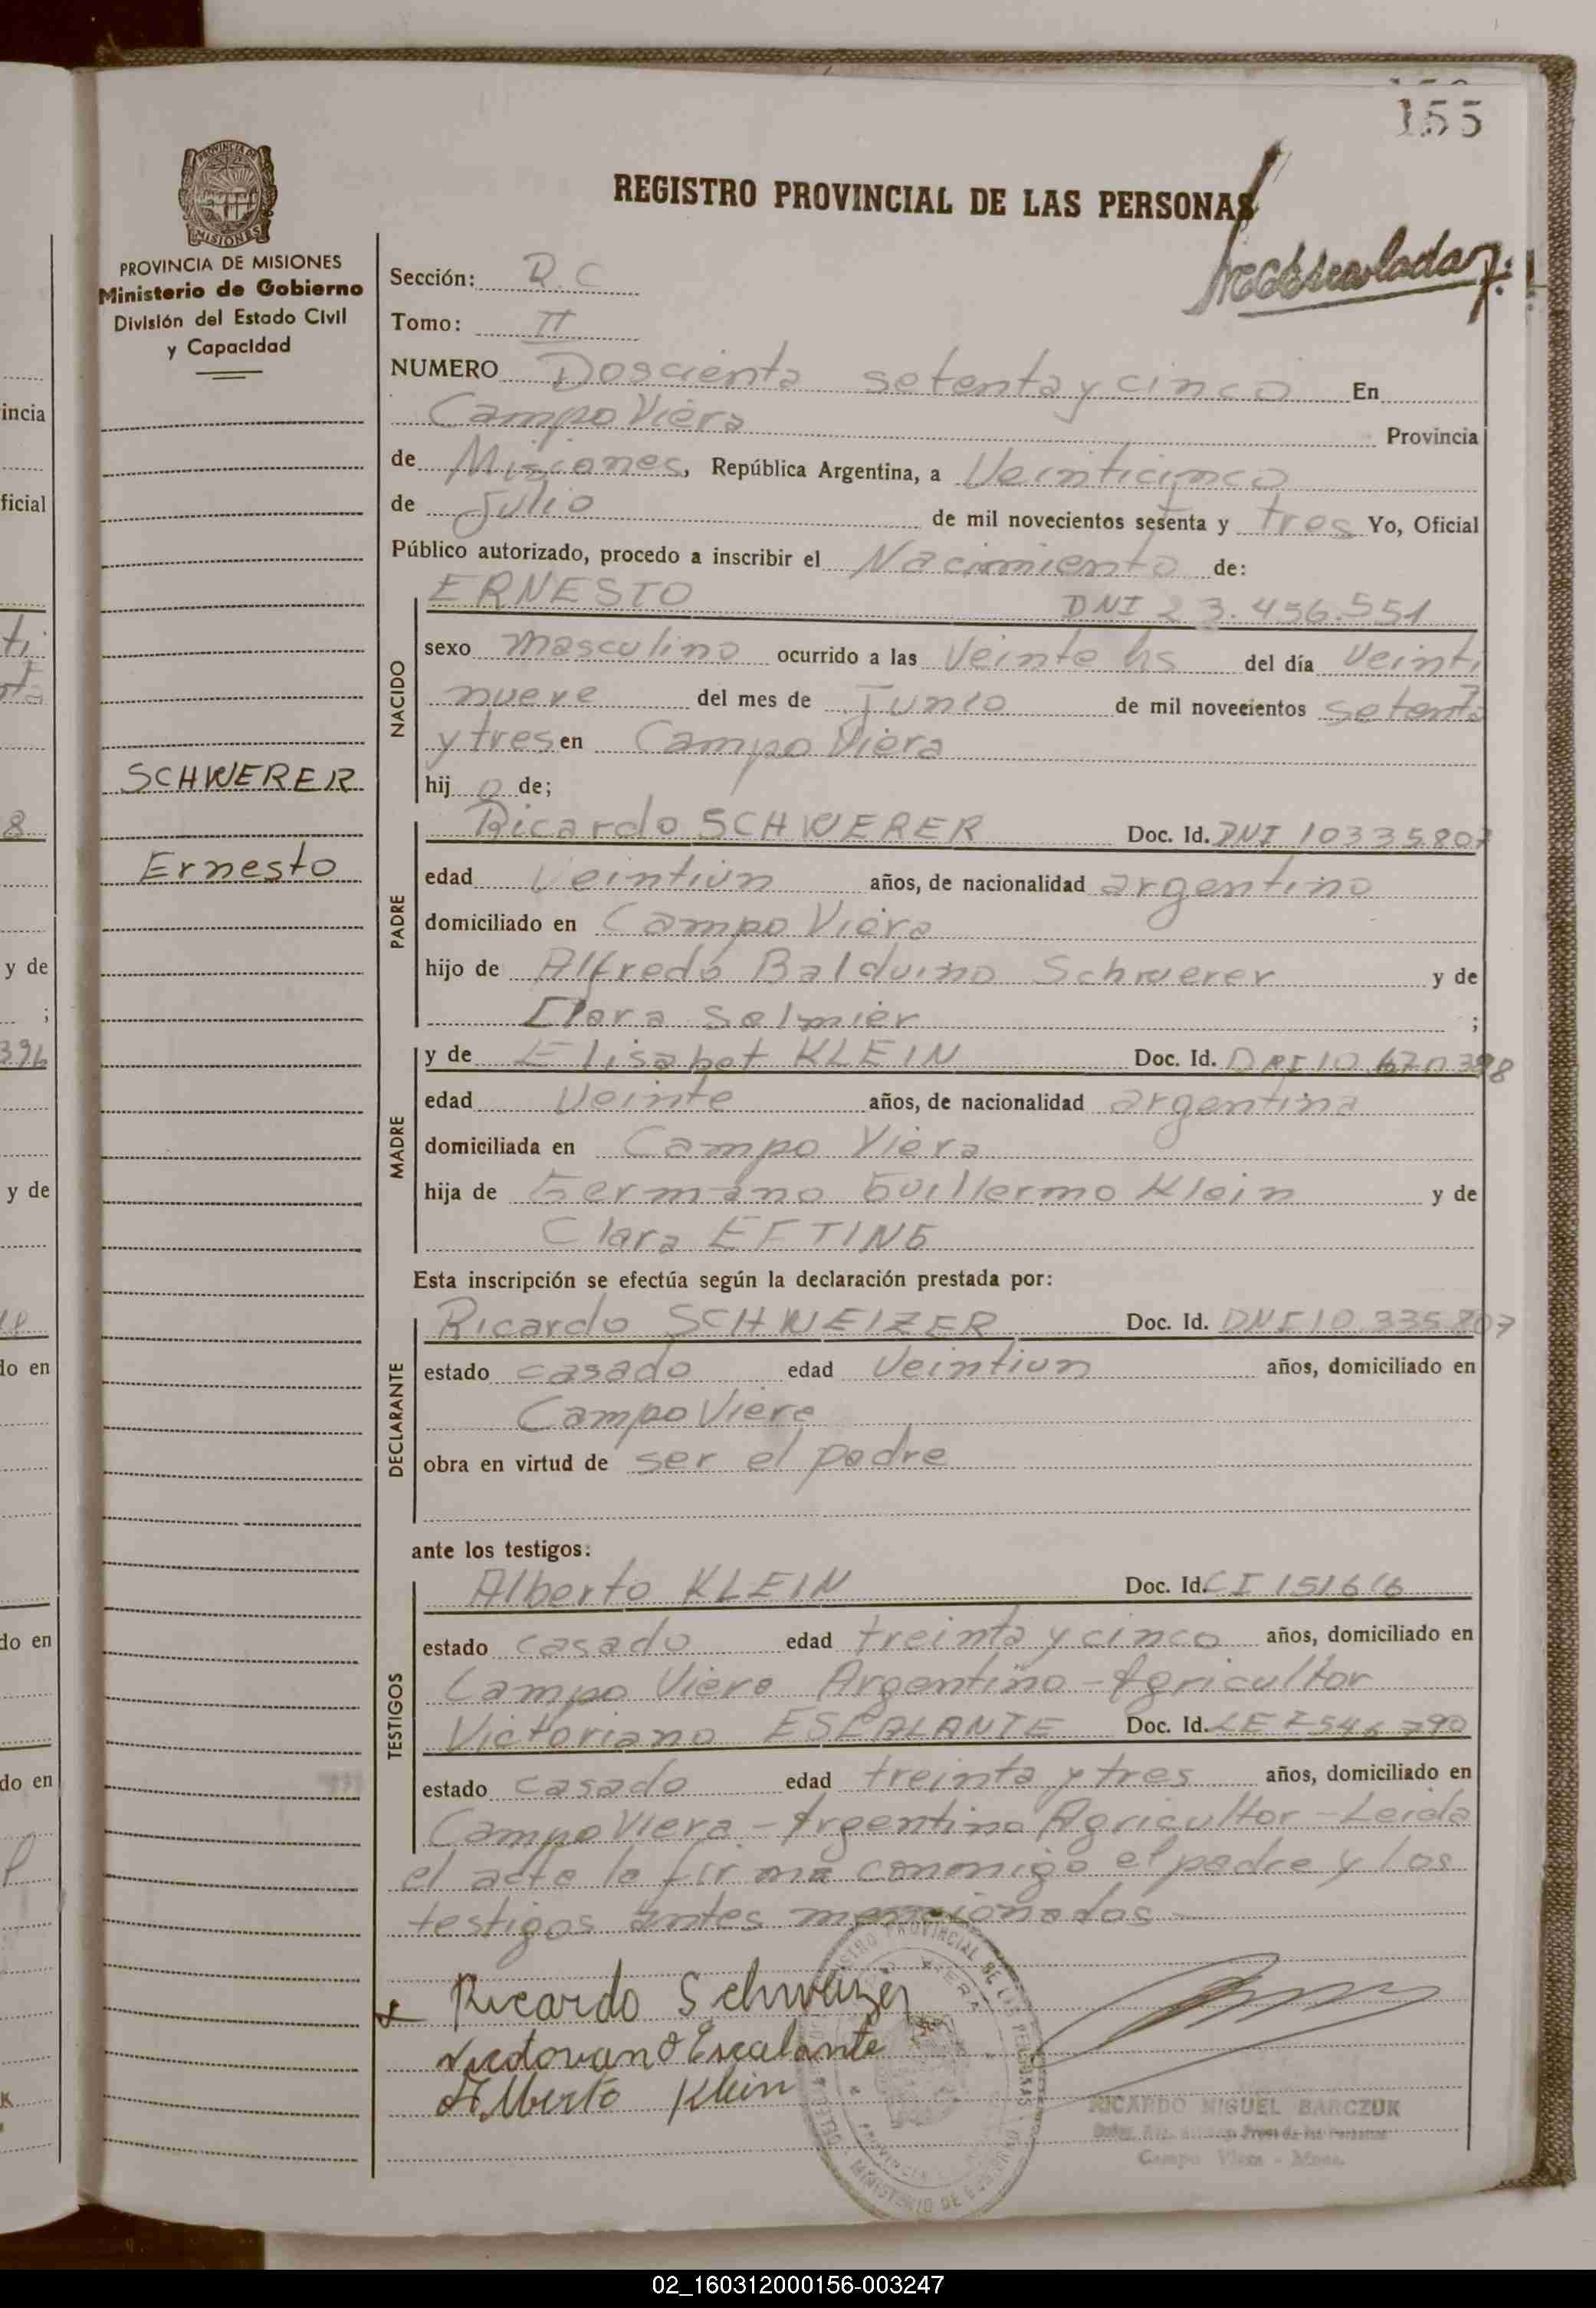 155
REGISTRO PROVINCIAL DE LAS PERSONAS
PROVINCIA DE
MISIONES
PROVINCIA DE MISIONES
Ministerio de Gobierno
División del Estado Civil
y Capacidad
SCHWERER
Ernesto
Sección:
Tomo: II
NUMERO Doscienta setenta y cinco En
Campo Viera Provincia
de Misiones, República Argentina, a Veinticinco
de Julio de mil novecientos sesenta y tres Yo, Oficial
Público autorizado, procedo a inscribir el Nacimiento de:
ERNESTO DNI 23.456.551
NACIDO
sexo masculino ocurrido a las Veinte hs del día Veinti
nueve del mes de Junio de mil novecientos setenta
y tres en Campo Viera
hij o de;
PADRE
Ricardo SCHWERER Doc. Id. DNI 10335807
edad Veintiun años, de nacionalidad argentino
domiciliado en Campo Viera
hijo de Alfredo Balduino Schwerer y de
Clara Selmier ;
MADRE
y de Elisabet KLEIN Doc. Id.
edad Veinte años, de nacionalidad argentina
domiciliada en Campo Viera
hija de Germano Guillermo Klein y de
Clara EFTING
Esta inscripción se efectúa según la declaración prestada por:
DECLARANTE
Ricardo SCHWEIZER Doc. Id. DNI 10.335.807
estado casado edad Veintiun años, domiciliado en
Campo Viera
obra en virtud de ser el padre
ante los testigos:
TESTIGOS
Alberto KLEIN Doc. Id. CI 151616
estado casado edad treinta y cinco años, domiciliado en
Campo Viera Argentino - Agricultor
Victoriano ESCALANTE Doc. Id. LE 7546790
estado casado edad treinta y tres años, domiciliado en
Campo Viera - Argentino Agricultor - Leida
el acta la firma conmigo el padre y los
testigos antes mencionados
Ricardo Schweizer
Victoriano Escalante
Alberto Klein
RICARDO MIGUEL BARCZUK
Campo Viera - Mnes.
02_160312000156-003247